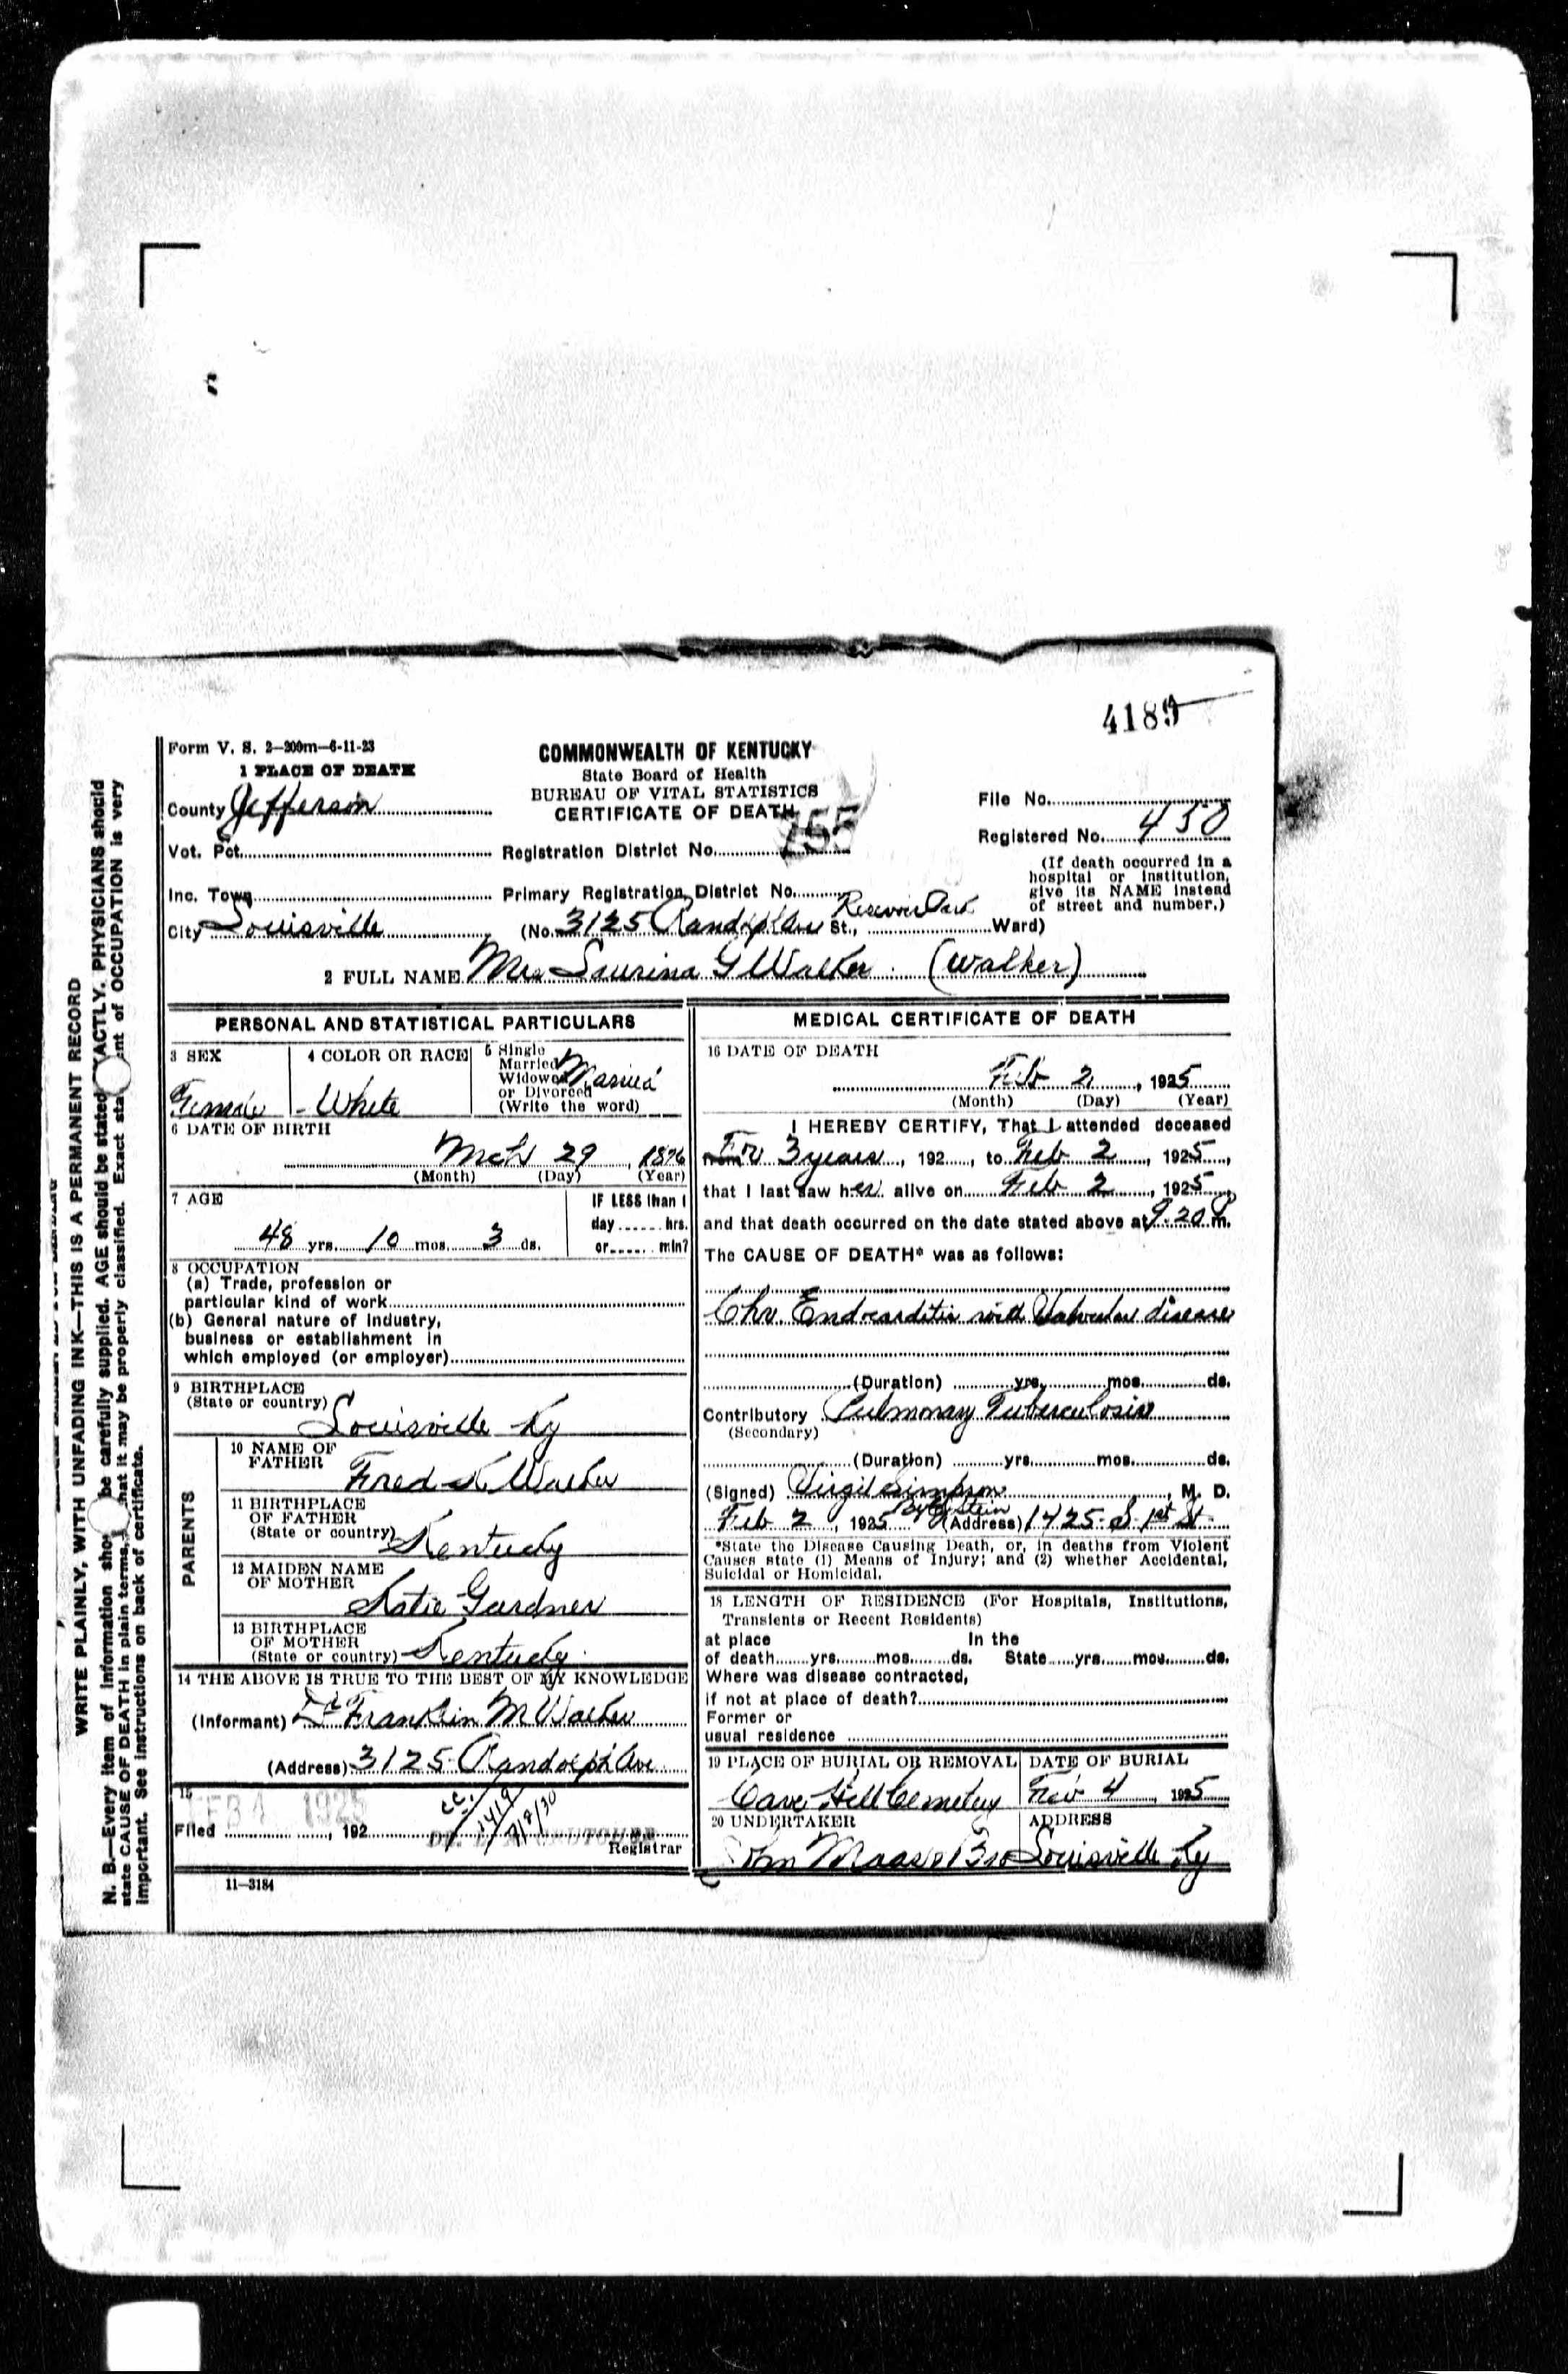 4189
Form V. S. 2—200m—6-11-23
1 PLACE OF DEATH
COMMONWEALTH OF KENTUCKY
State Board of Health
BUREAU OF VITAL STATISTICS
CERTIFICATE OF DEATH
County Jefferson
File No.
Registered No. 430
Vot. Pct.
Registration District No. 755
(If death occurred in a hospital or institution, give its NAME instead of street and number.)
Inc. Town
Primary Registration District No.
City Louisville
(No. 3125 Randolph Ave St., Ward)
2 FULL NAME Mrs G Walker (Walker)
PERSONAL AND STATISTICAL PARTICULARS
3 SEX
Female
4 COLOR OR RACE
White
5 Single Married Widowed or Divorced (Write the word)
Married
6 DATE OF BIRTH
Mch 29, 1876
(Month) (Day) (Year)
7 AGE
48 yrs. 10 mos. 3 ds.
IF LESS than 1 day hrs. or min?
8 OCCUPATION
(a) Trade, profession or particular kind of work
(b) General nature of Industry, business or establishment in which employed (or employer)
9 BIRTHPLACE
(State or country)
Louisville Ky
PARENTS
10 NAME OF FATHER
Fred Walker
11 BIRTHPLACE OF FATHER
(State or country)
Kentucky
12 MAIDEN NAME OF MOTHER
Katie Gardner
13 BIRTHPLACE OF MOTHER
(State or country)
Kentucky
14 THE ABOVE IS TRUE TO THE BEST OF MY KNOWLEDGE
(Informant) Franklin M Walker
(Address) 3125 Randolph Ave
15
FEB 4 1925
Filed , 192
Registrar
11—3184
MEDICAL CERTIFICATE OF DEATH
16 DATE OF DEATH
Feb 2, 1925
(Month) (Day) (Year)
I HEREBY CERTIFY, That I attended deceased
from For 3 years, 192 , to Feb 2, 1925,
that I last saw her alive on Feb 2, 1925,
and that death occurred on the date stated above at 9:20 P m.
The CAUSE OF DEATH* was as follows:
Chr. Endocarditis with Valvular disease
(Duration) yrs. mos. ds.
Contributory Pulmonary Tuberculosis
(Secondary)
(Duration) yrs. mos. ds.
(Signed) Virgil Simpson, M. D.
Feb 2, 1925 (Address) 1425 S 1st St
*State the Disease Causing Death, or, in deaths from Violent
Causes state (1) Means of Injury; and (2) whether Accidental,
Suicidal or Homicidal.
18 LENGTH OF RESIDENCE (For Hospitals, Institutions,
Transients or Recent Residents)
at place In the
of death yrs. mos. ds. State yrs. mos. ds.
Where was disease contracted,
if not at place of death?
Former or
usual residence
19 PLACE OF BURIAL OR REMOVAL
Cave Hill Cemetery
DATE OF BURIAL
Feb 4, 1925
20 UNDERTAKER
John Maas & Bro
ADDRESS
Louisville Ky
WRITE PLAINLY, WITH UNFADING INK—THIS IS A PERMANENT RECORD
N. B.—Every item of information be carefully supplied. AGE should be stated PHYSICIANS should
state CAUSE OF DEATH in plain terms, that it may be properly classified. Exact of OCCUPATION is very
important. See instructions on back of certificate.